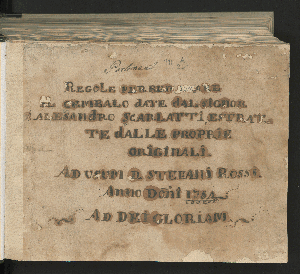 REGOLE PER BEN SONARE
IL CEMBALO DATE DAL SIGNOR
ALESANDRO SCARLATTI ESTRAT
TE DALLE PROPRIE
ORIGINALI.
AD USUM D. STEFANI ROSSI.
ANNO DOÑI 1754
AD DEI GLORIAM